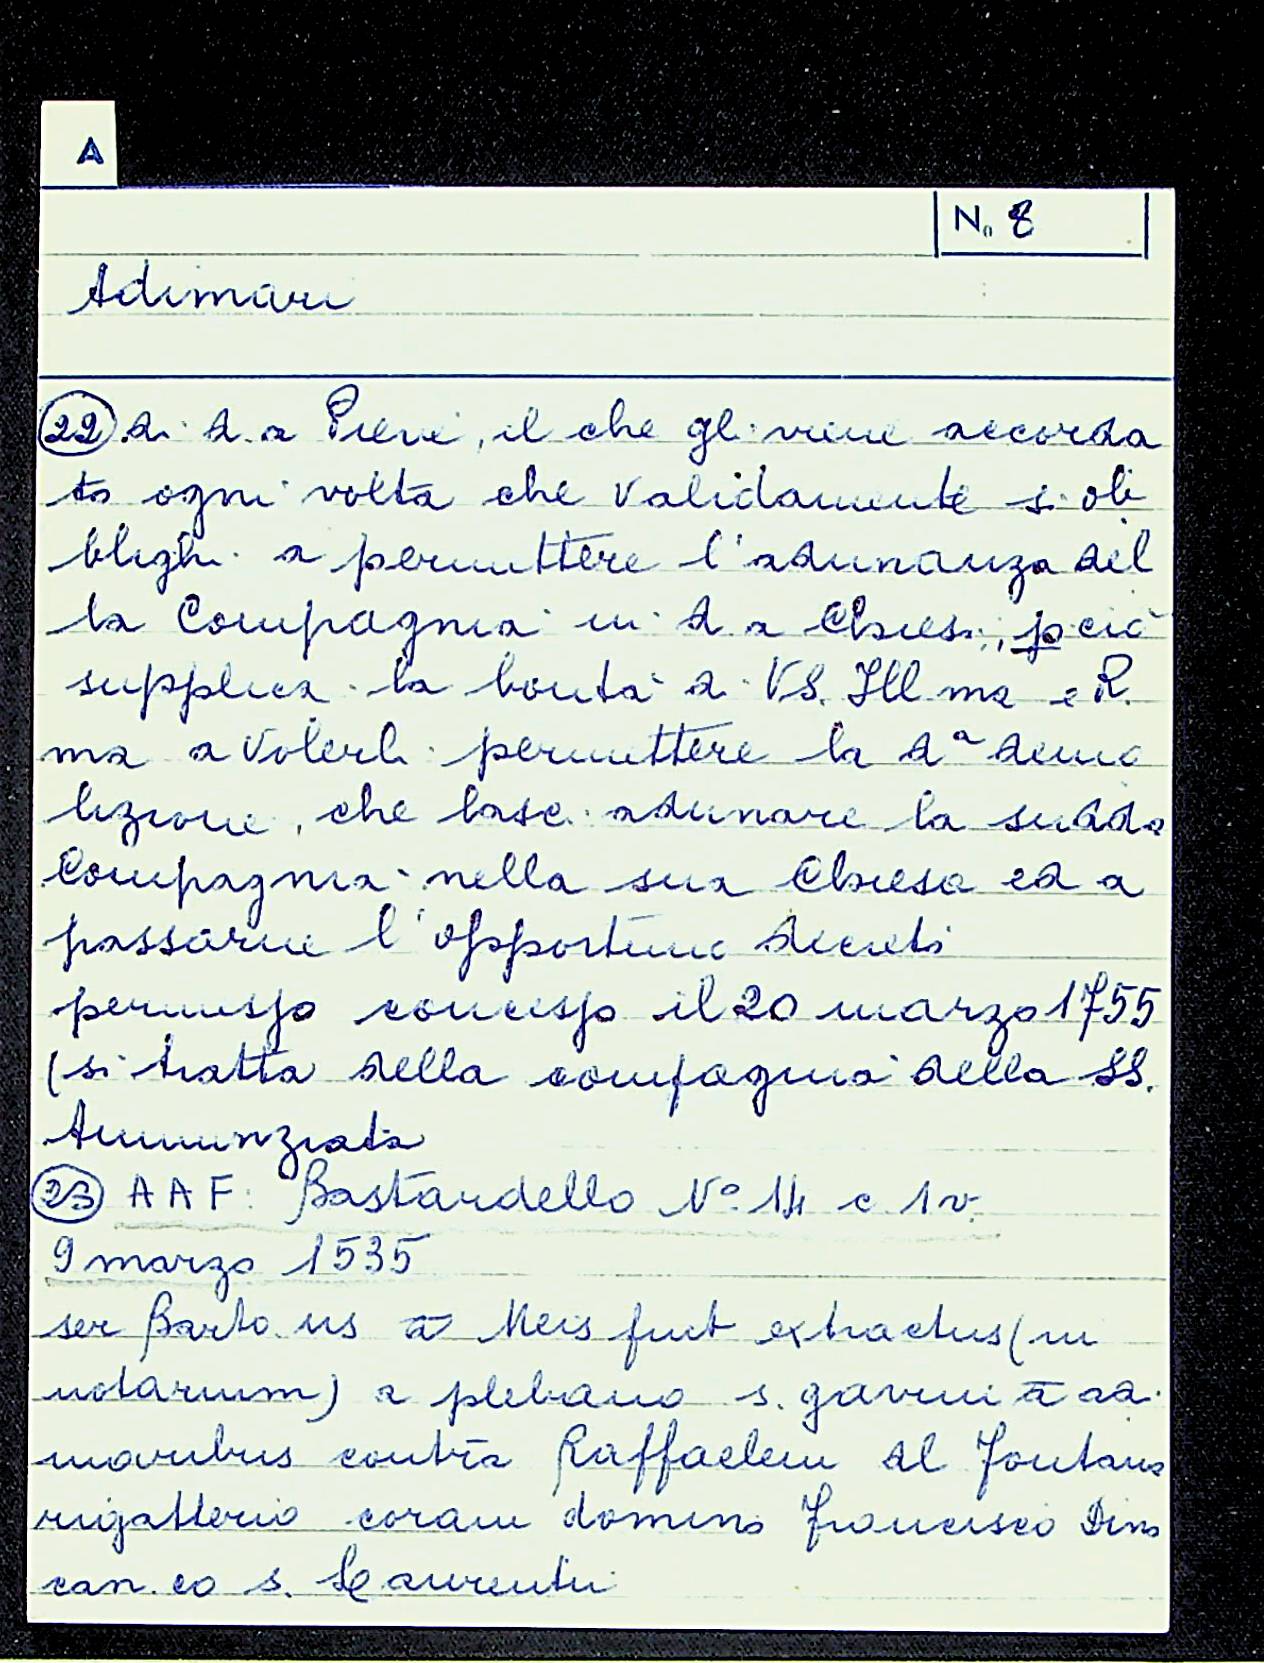 A
N. 8
Adimari
22 di d.a Pieve, il che gli viene accorda
to ogni volta che validamente si ob
blighi a permettere l'adunanza del
la Compagnia in d a Chiesa, p ciò
supplica la bontà di VS. Ill ma e R.
ma a volerli permettere la d.a demo
lizione, che lasci adunare la sudd.a
Compagnia nella sua Chiesa ed a
passarne l'opportuno decreto
permesso concesso il 20 marzo 1755
(si tratta della compagnia della SS.
Annunziata
23 AAF: Bastardello N° 14 c 1v.
9 marzo 1535
ser Barto us a Meis fuit extractus (in
notarium) a plebano s. gavini a adi
maribus contra Raffaelem del Fontana
rigatterio coram domino Francisco Dini
can.co s. Laurentii